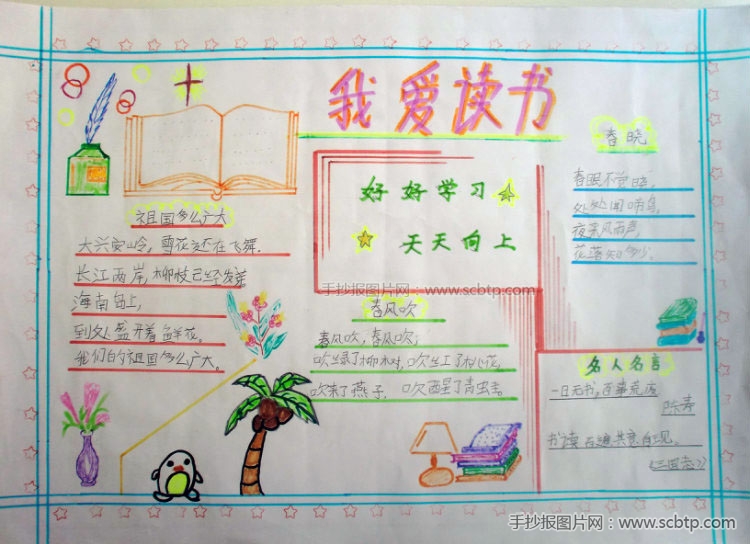 我爱读书
祖国多么广大
大兴安岭，雪花还在飞舞.
长江两岸，柳枝已经发芽
海南岛上，
到处盛开着鲜花。
我们的祖国多么广大。
好好学习
天天向上
手抄报图片网：www.scbtp.com
春风吹
春风吹，春风吹；
吹绿了柳树，吹红了桃花，
吹来了燕子，吹醒了青蛙。
春晓
春眠不觉晓，
处处闻啼鸟，
夜来风雨声，
花落知多少.
名人名言
一日无书，百事荒废
陈寿
书读百遍其意自现。
《三国志》
手抄报图片网：www.scbtp.com